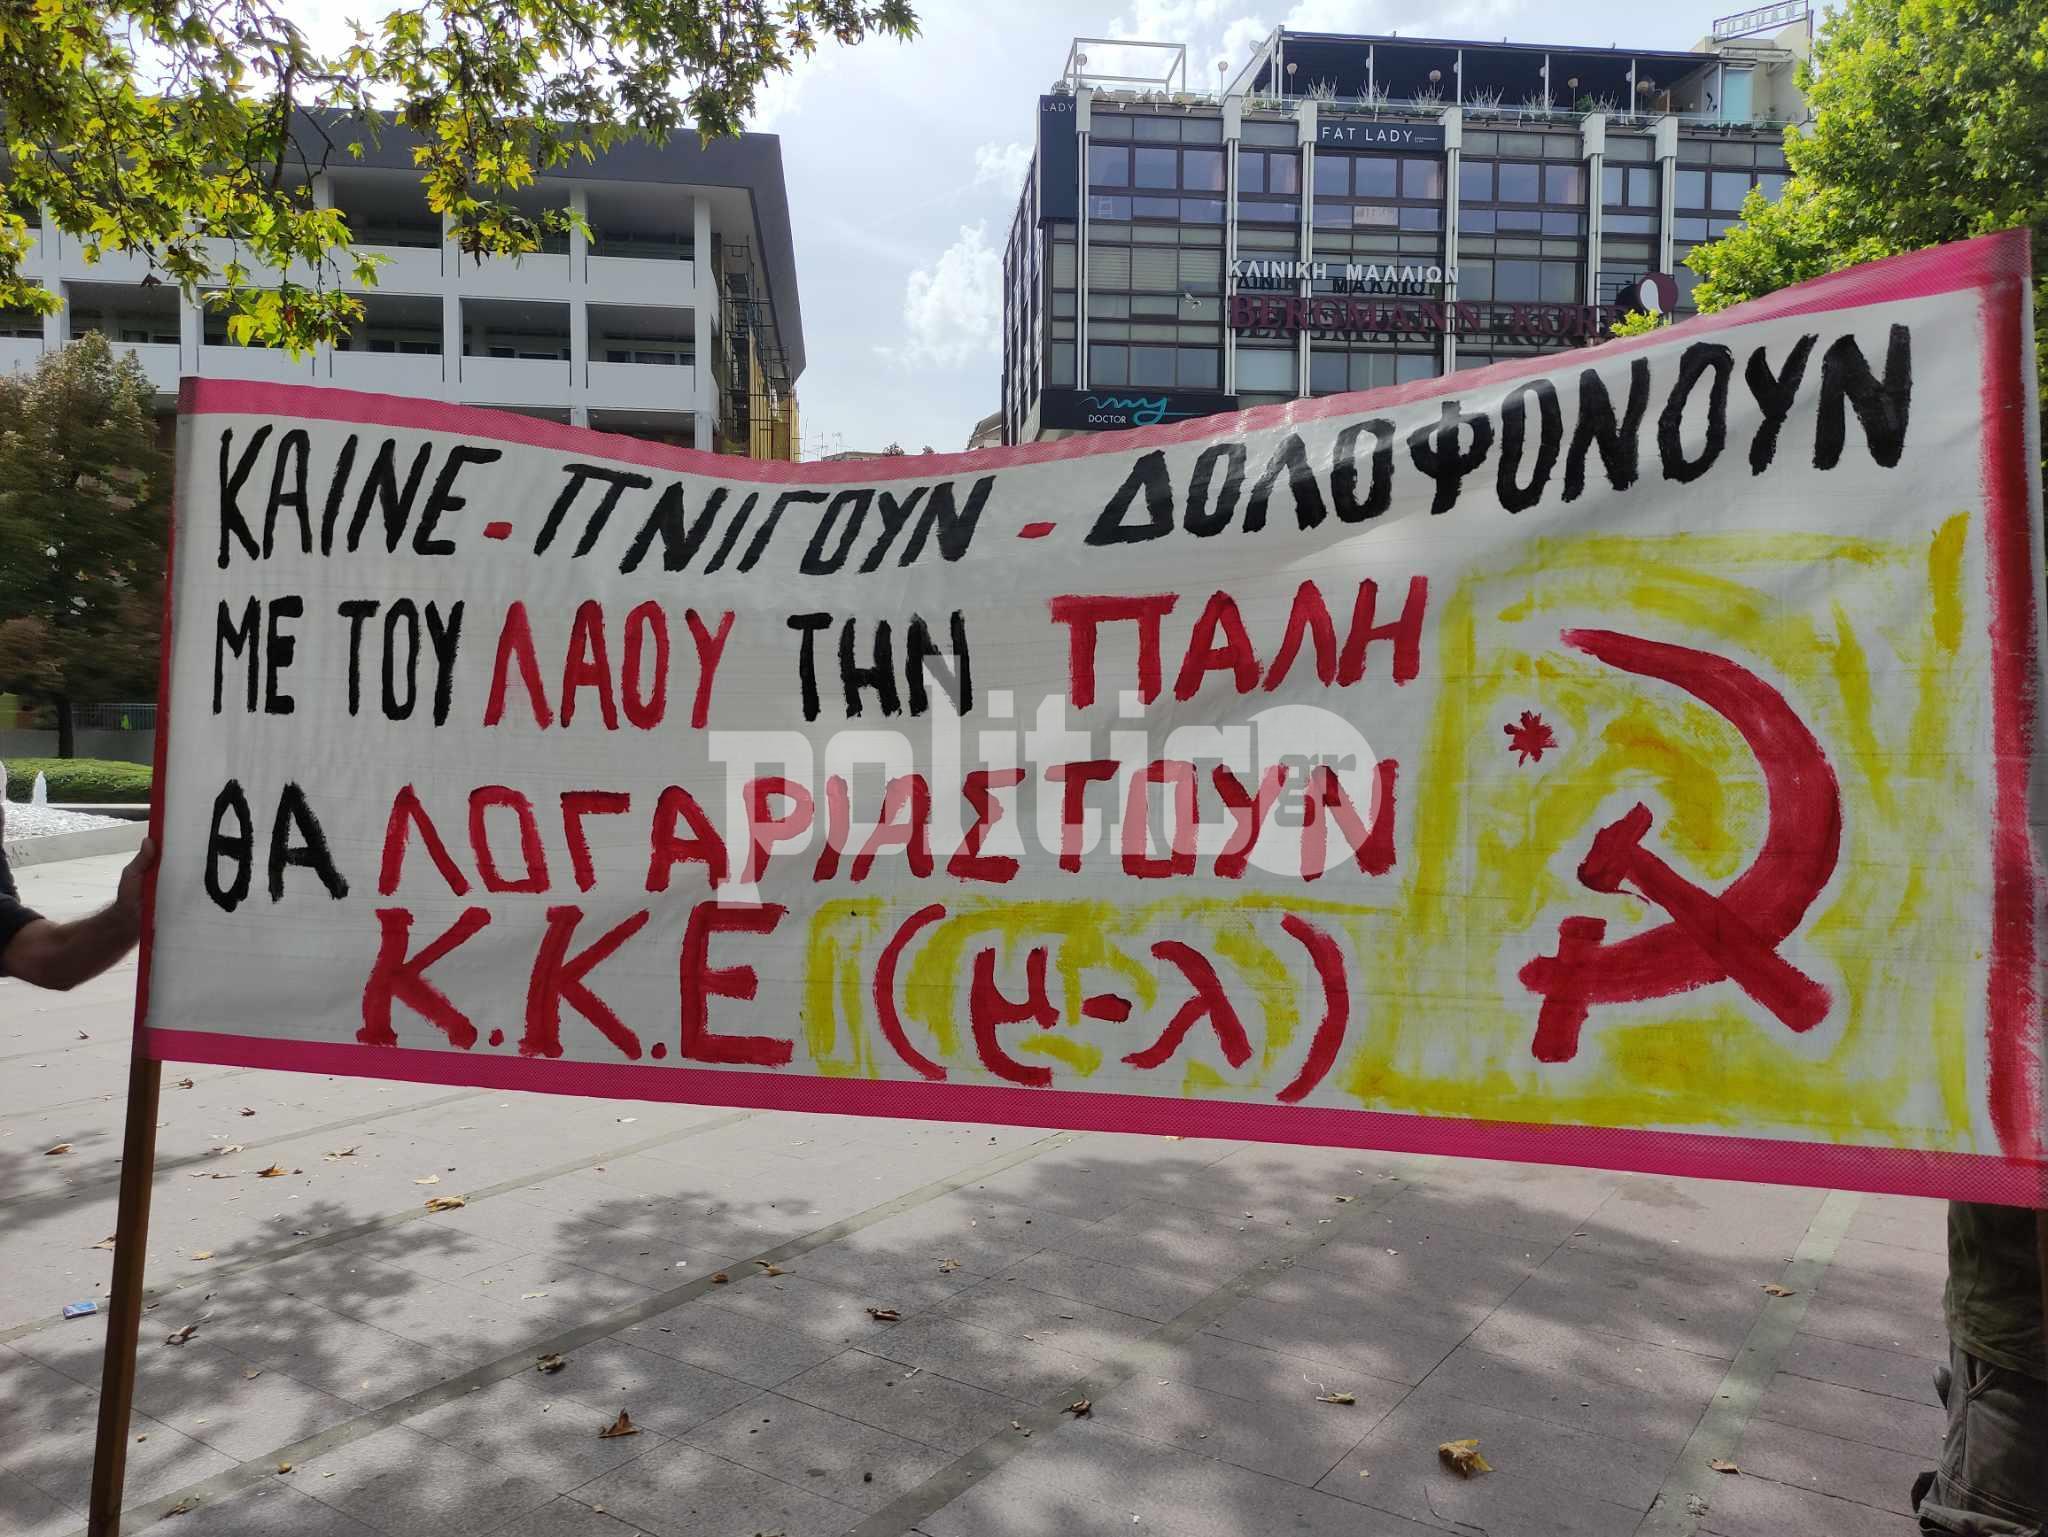 JORDAN
LADY
FAT LADY
ΚΛΙΝΙΚΗ ΜΑΛΛΙΩΝ
BERGMANN KORD
my
DOCTOR
ΚΑΙΝΕ - ΠΝΙΓΟΥΝ - ΔΟΛΟΦΟΝΟΥΝ
ΜΕ ΤΟΥ ΛΑΟΥ ΤΗΝ ΠΑΛΗ
ΘΑ ΛΟΓΑΡΙΑΣΤΟΥΝ
Κ.Κ.Ε (μ-λ)
politic gr